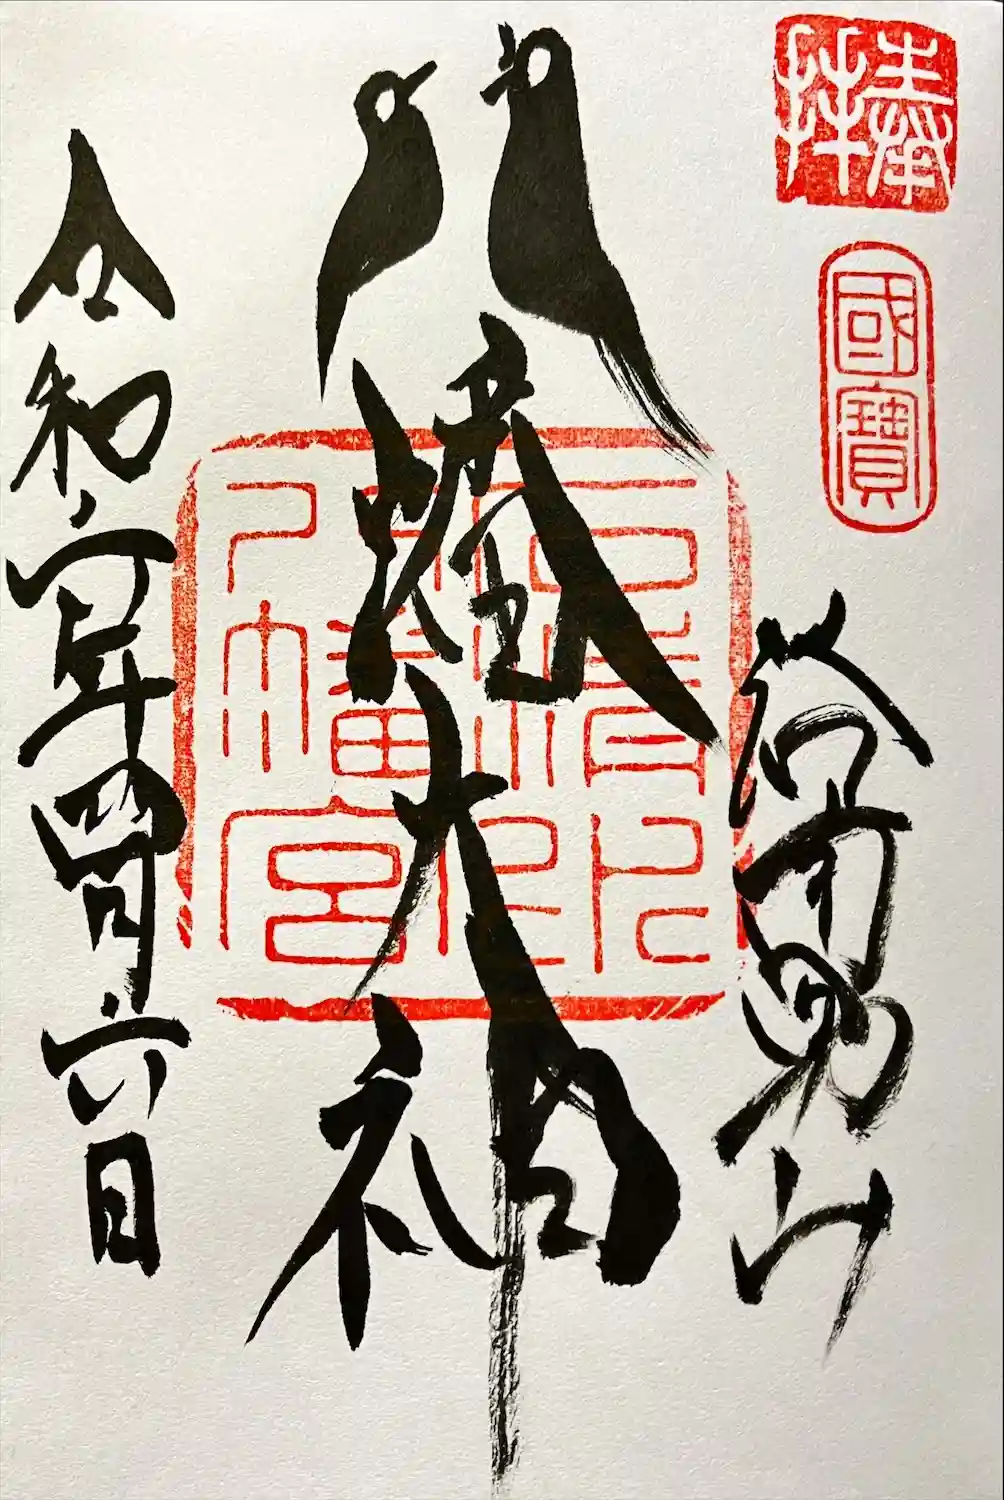 奉拝
國寶
男山
八幡大神
石清水
八幡宮
令和六年四月六日